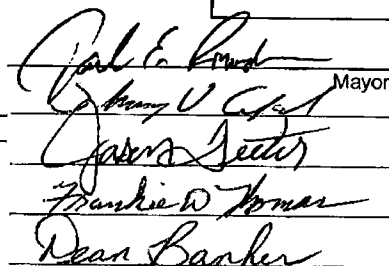 E.
Mayor
Johnny V
Jason Teeter
Frankie D Thomas
Dean Banker